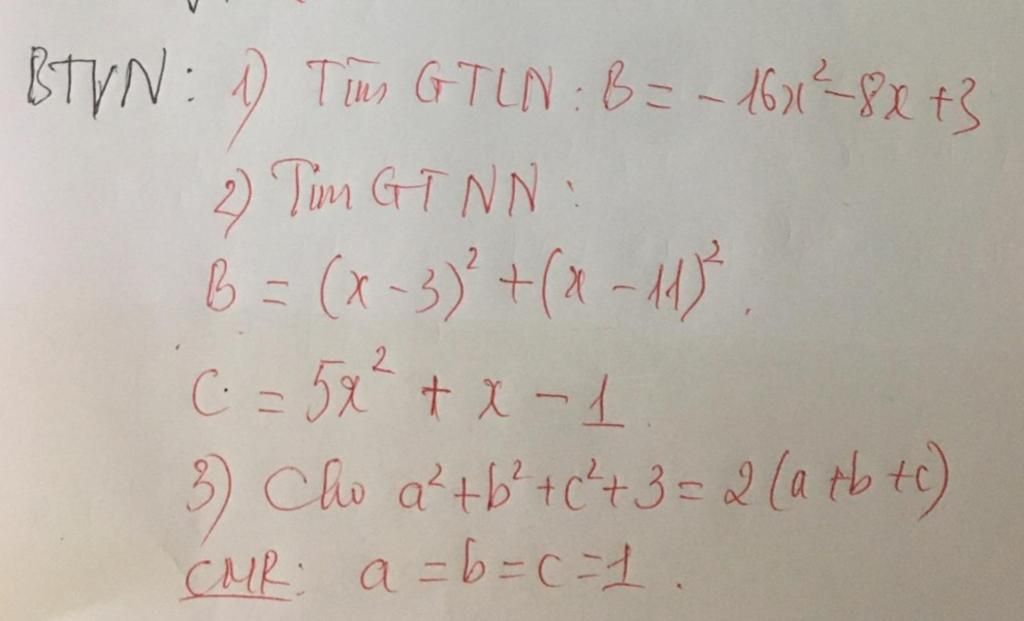 BTVN: 1) Tìm GTLN: B = -16x² - 8x + 3
2) Tìm GTNN:
B = (x - 3)² + (x - 11)².
C = 5x² + x - 1.
3) Cho a² + b² + c² + 3 = 2(a + b + c)
CMR: a = b = c = 1.